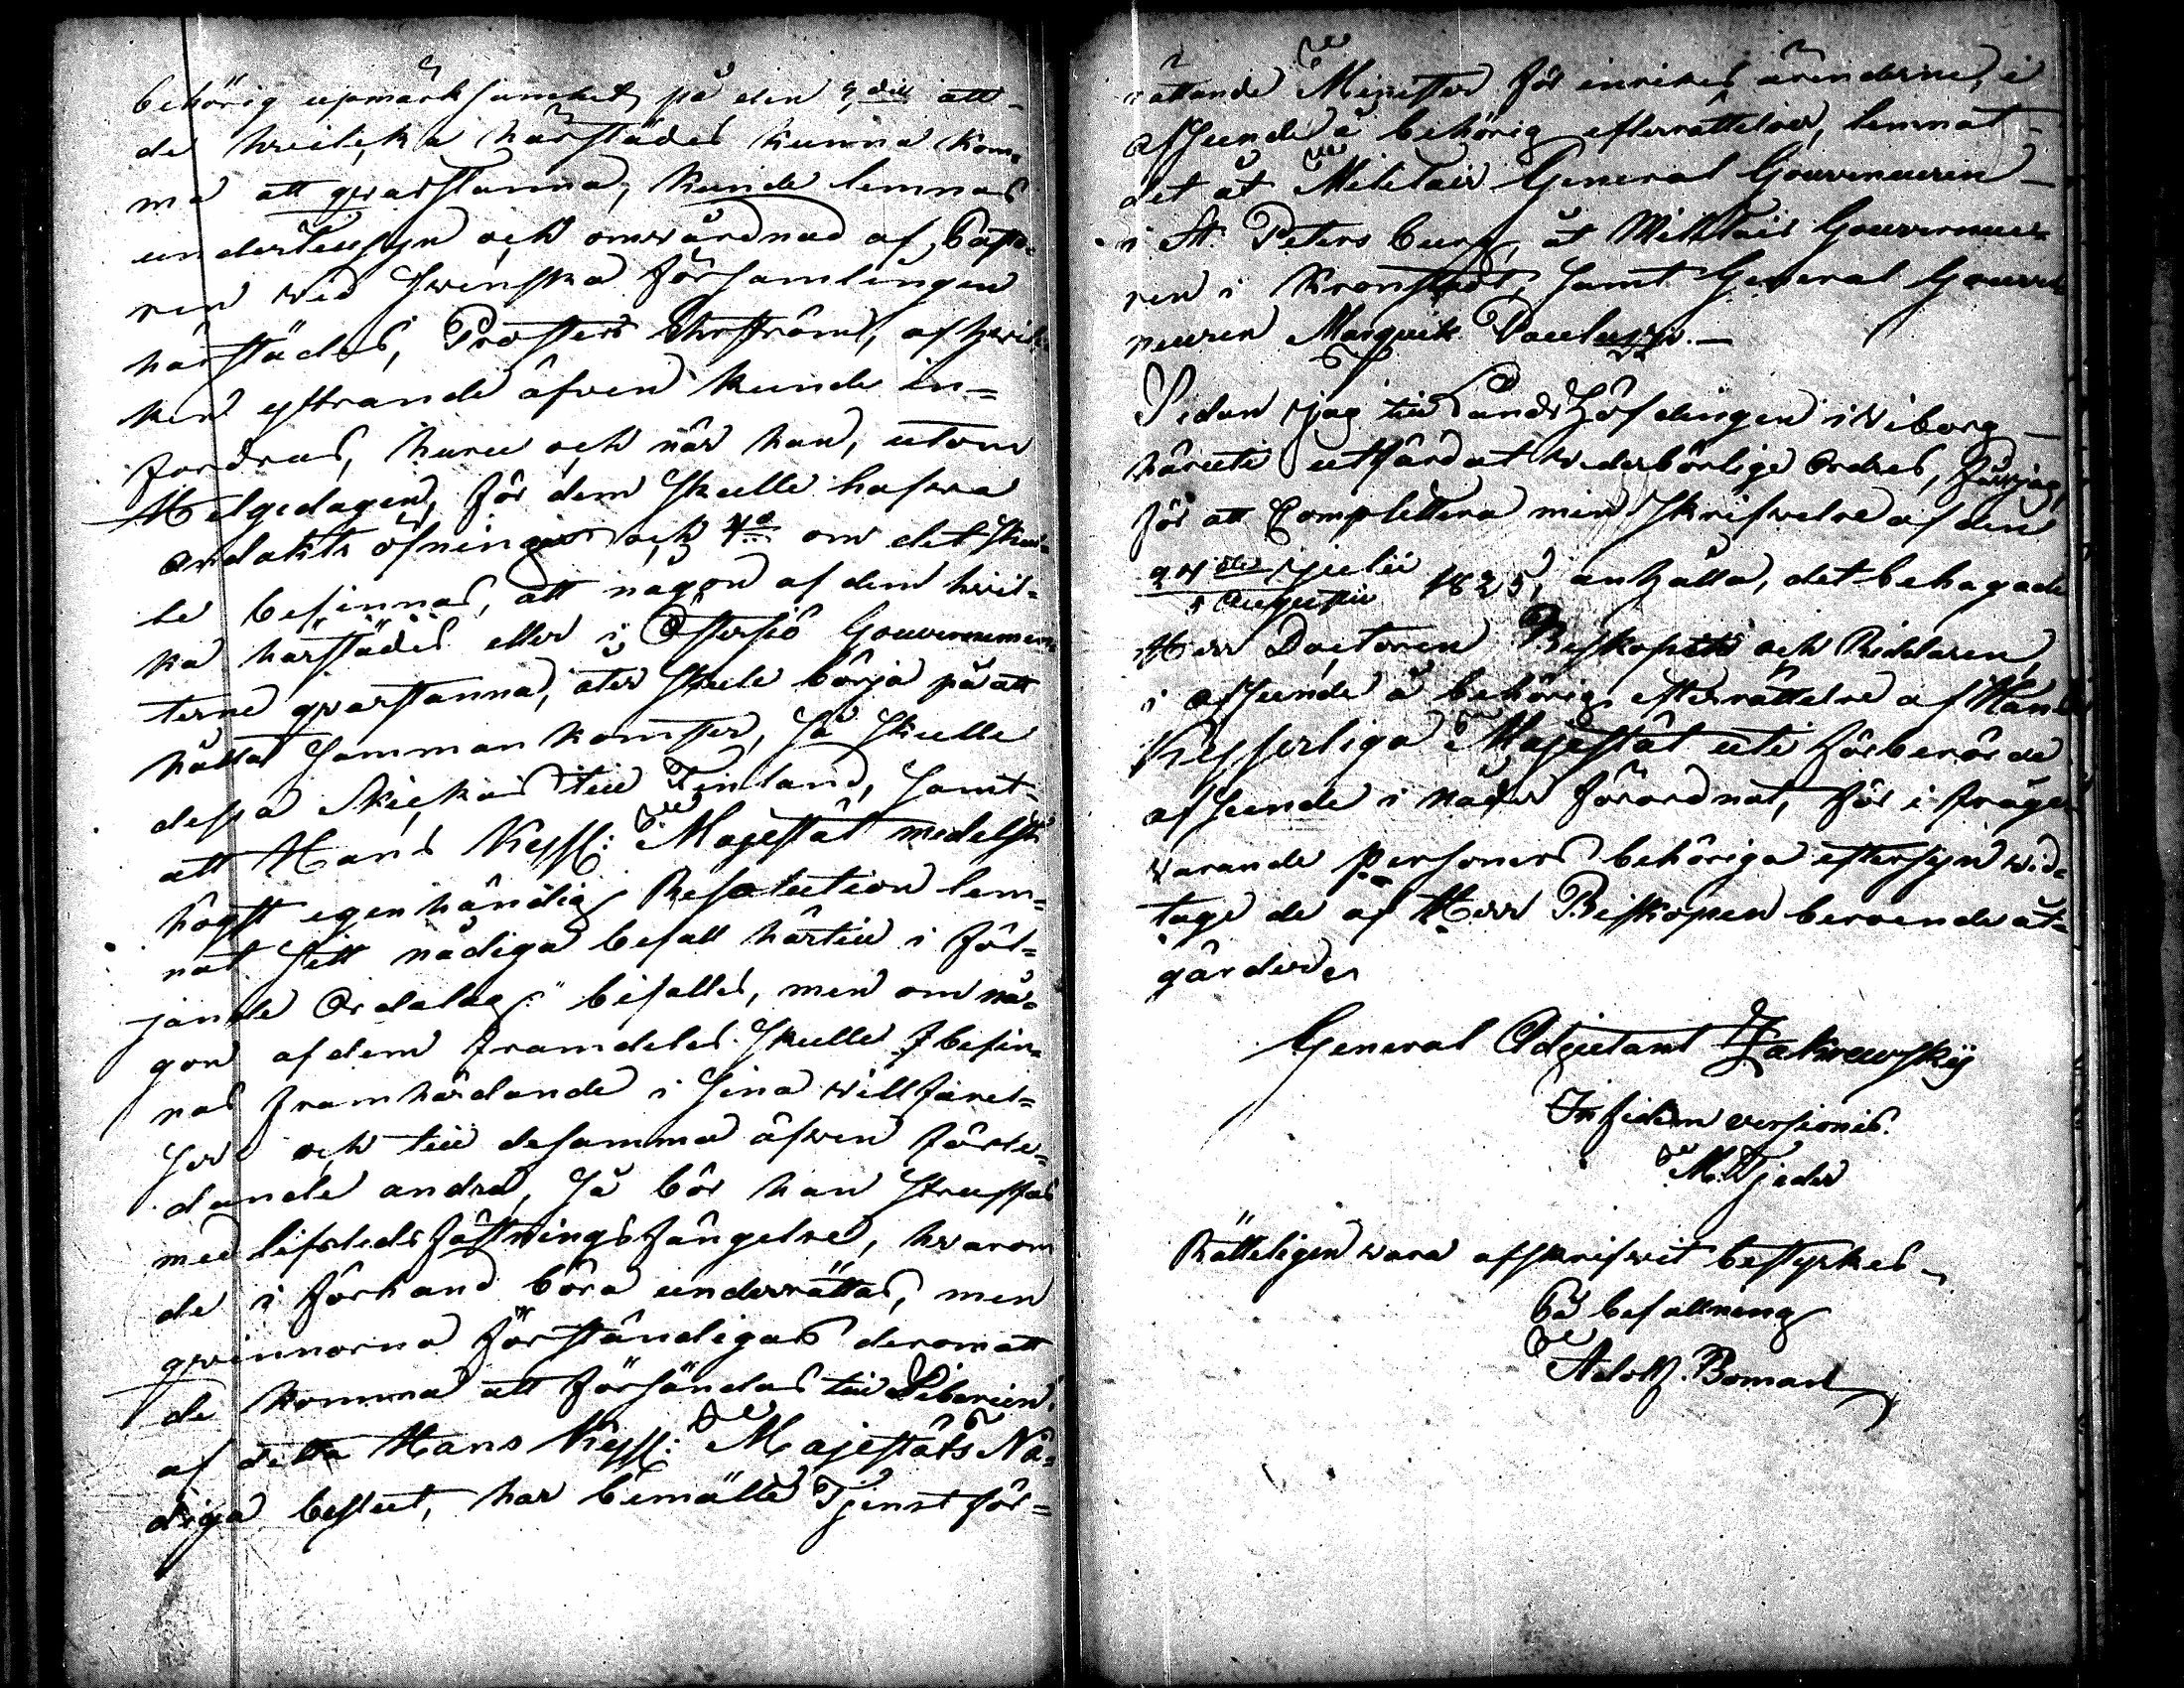 behörig upmärksamhet på den att-
de hvilcka härstädes kunna kom-
ma att qvarstanna, kunde lemnas
under tillsyn och omvårdnad af Pasto-
ren wid Swenska Församlingen
härstädes, Prosten Ehrström, af hvil-
ken yttrande äfven kunde in-
fordras, huru och när han, utom
Helgedagen, för dem skulle hafwa
andakts öfningar och 4:o om det skul-
le befinnas, att någon af dem hvil-
ka härstädes eller i Östersjö Gouvernemen-
terne qvarstanna, åter skulle börja på att
hålla Sammankomster, så skulle
dessa skickas till Finland, samt
att Hans Kejss: Majestät medelst
högst egenhändig Resolution lem-
nat sitt nådiga befall härtill i föl-
jande Ordalag: "bifalles, men om nå-
gon af dem framdeles skulle befin-
nas framhärdande i sina willfarel-
ser och till desamma äfwen förle-
dande andra, så bör han straffas
med lifstids fästningsfängelse, hvarom
de i förhand böra underrättas, men
qvinnorna förständigas derom att
de komma att försändas till Siberien".
af detta Hans Kejss: Majestäts Nå-
diga beslut, har bemälte Tjenst för-
rättande Minister för inrikes ärenderne, i
afseende å behörig efterrättelse, lemnat
det åt Militair General Gouverneuren
i St. Petersburg, åt Militair Gouverneu-
ren i Kronstadt, samt General Gouver-
neuren Marquis Paulucci. —
Sedan jag till Landshöfdingen i Wiborg
häruti utfärdat wederbörlige Ordres, får jag,
för att Complettera min Skrifwelse af den
24 de julii
5 Augustii 1825, anhålla, det behagade
Herr Doctoren Biskopen och Riddaren,
i afseende å behörig efterrättelse af Hans
Kejserliga Majestät uti förberörde
afseende i nåder förordnat, för i fråga
varande personers behöriga eftersyn wid-
taga de af Herr Biskopen beroende åt-
gärder.
General Adjutant Zakrewsky
In fidem versionis.
M. Tjeder
Rätteligen vara afskrifwit bestyrkes
På befallning
Adolf Boman